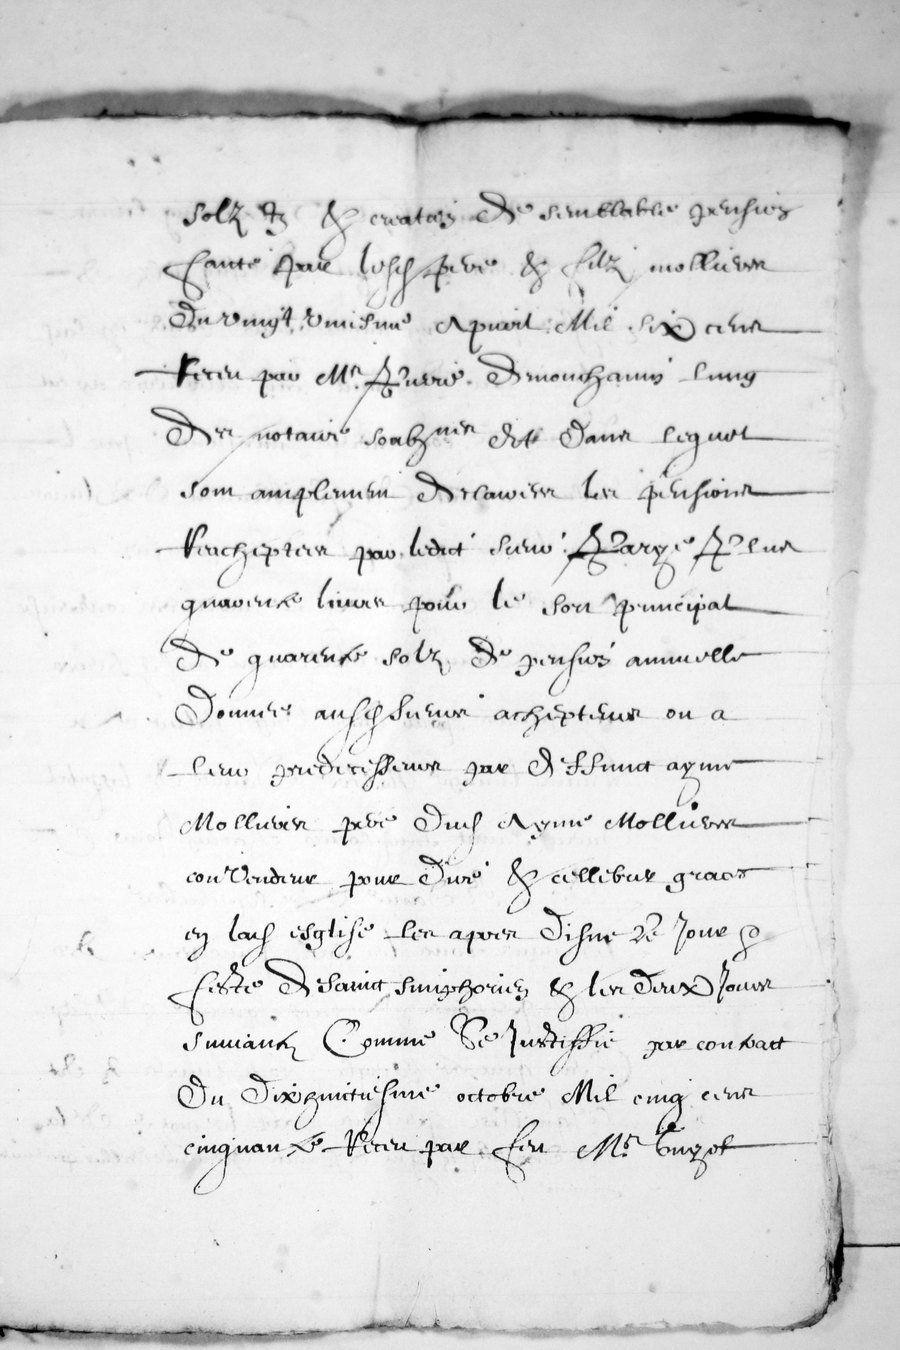 solz et creation de semblable pension
faicte par lesd pere & filz mollieres
du vingt uniesme apvril mil six cens
Receu par Me Pierre demonchanin lung
des notaire soubznes et dans lequel
sont amplement declairees les pensions
Racheptees par ledict sieur Plus
quarente livres pour le sort principal
de quarente solz de pension annuelle
donnee ausd sieurs achepteurs ou a
leurs predecesseurs par deffunct ayme
Mollieres pere dud Ayme Mollieres
convendeur pour dire & cellebrer graces
en lad esglise les apres disne le jour &
feste de sainct simphorien & les deux jours
suivantz Comme se justiffie par contract
du dixhuictiesme octobre mil cinq cens
cinquante Receu par feu Me